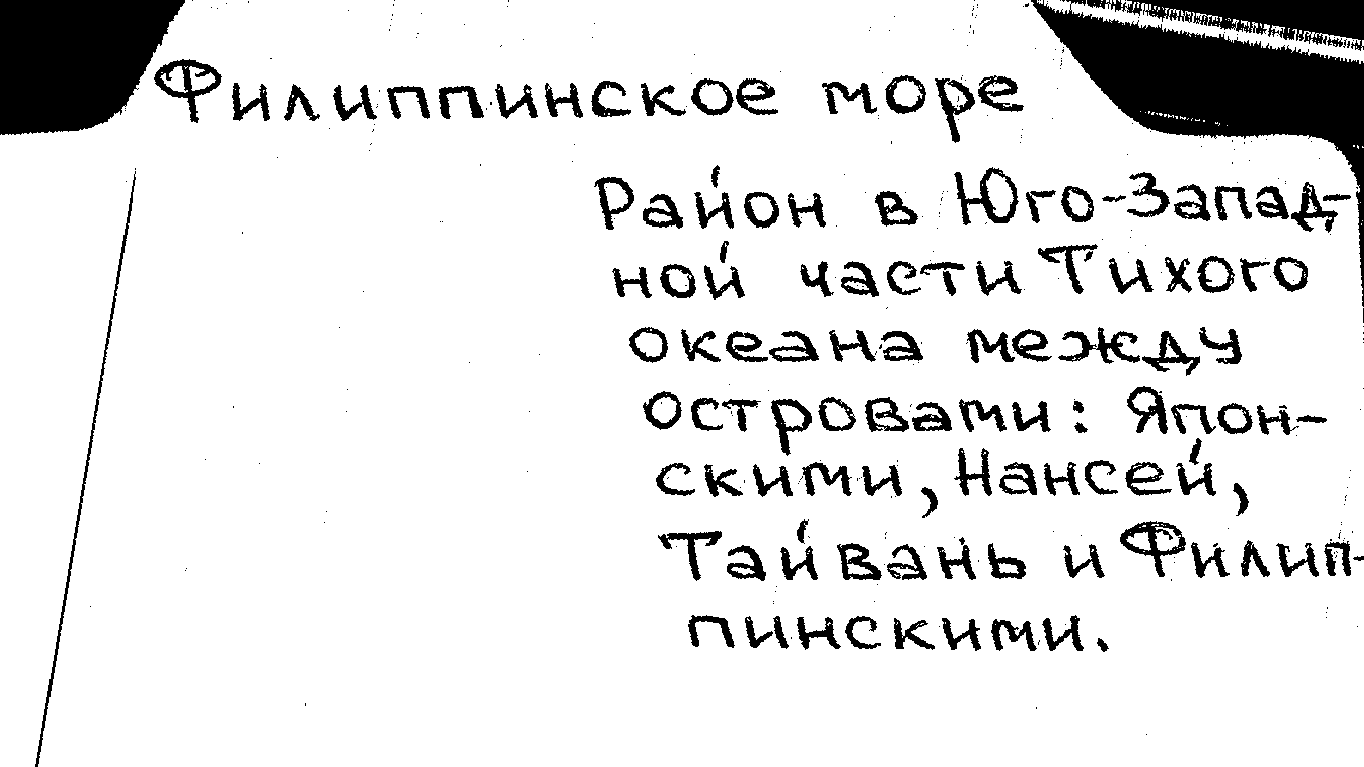 Филиппинское море
Район в Юго-Запад-
ной части Тихого
океана между
островами: Япон-
скими, Нансей,
Тайвань и Филип-
пинскими.